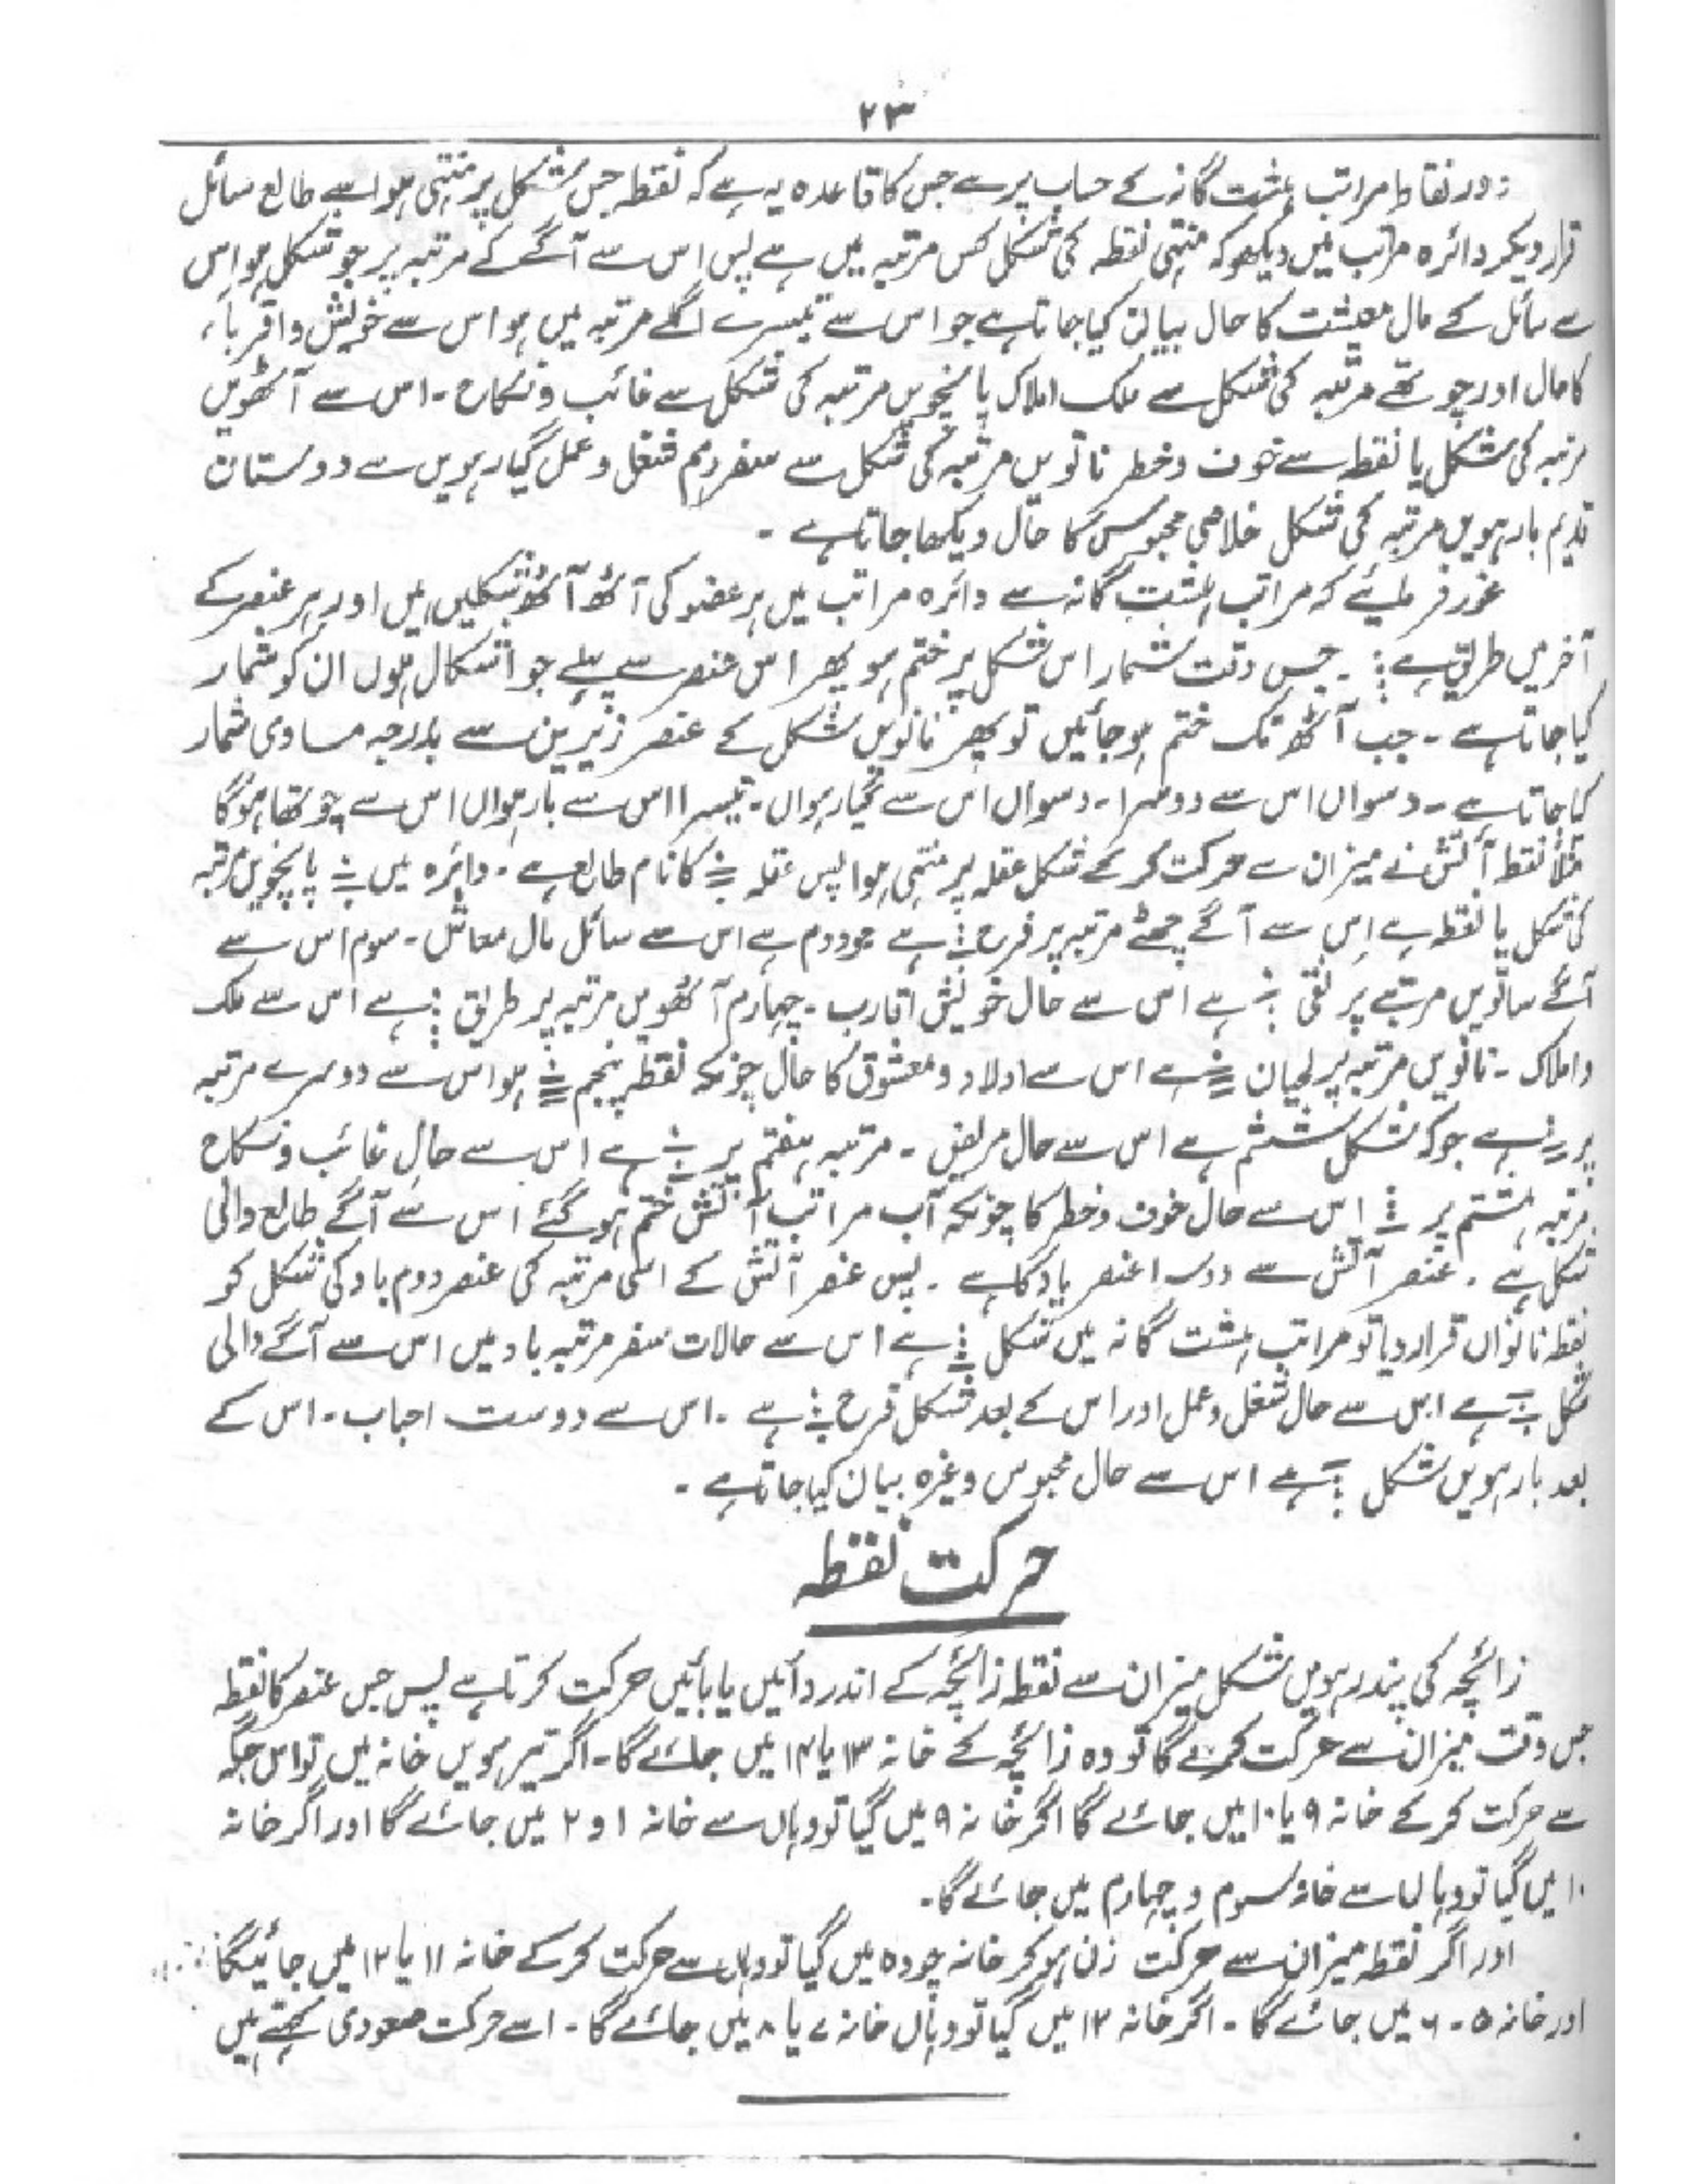 ۲۳
دور نقاط مراتب ہشت گانہ کے حساب پر ہے جس کا قاعدہ یہ ہے کہ نقطہ جس شکل پر منتہی ہو اسے طالع سائل
قرار دیکر دائرہ مراتب میں دیکھو کہ منتہی نقطہ کی شکل کس مرتبہ میں ہے پس اس سے آگے کے مرتبہ پر جو شکل ہو اس
سے سائل کے مال معیشت کا حال بیان کیا جاتا ہے جو اس سے تیسرے اگلے مرتبہ میں ہو اس سے خویش و اقرباء
کا حال اور چوتھے مرتبہ کی شکل سے ملک املاک پانچویں مرتبہ کی شکل سے غائب و نکاح ۔ اس سے آٹھویں
مرتبہ کی شکل یا نقطہ سے خوف و خطر نانویں مرتبہ کی شکل سے سفر دہم شغل و عمل گیارہویں سے دوستان
ندیم بارہویں مرتبہ کی شکل خلاصی محبوس کا حال دیکھا جاتا ہے ۔
غور فرمائیے کہ مراتب ہشت گانہ سے دائرہ مراتب میں ہر عضو کی آٹھ آٹھ شکلیں ہیں اور ہر عنصر کے
آخر میں طریق ہے ۔ جس وقت شمار اس شکل پر ختم ہو پھر اس عنصر سے پہلے جو اشکال ہوں ان کو شمار
کیا جاتا ہے ۔ جب آٹھ تک ختم ہو جائیں تو پھر نانویں شکل کے عنصر زیریں سے بدرجہ مساوی شمار
کیا جاتا ہے ۔ دسواں اس سے دوسرا ۔ دسواں اس سے گیارہواں ۔ تیسرا اس سے بارہواں اس سے چوتھا ہوگا
مثلاً نقطہ آتش نے میزان سے حرکت کر کے شکل عقلہ پر منتہی ہوا پس عقلہ کا نام طالع ہے ۔ دائرہ میں پانچویں مرتبہ
کی شکل یا نقطہ ہے اس سے آگے چھٹے مرتبہ پر فرح ہے جو دوم ہے اس سے سائل مال معاش ۔ سوم اس سے
آگے ساتویں مرتبے پر نقی ہے اس سے حال خویش اقارب ۔ چہارم آٹھویں مرتبہ پر طریق ہے اس سے ملک
و املاک ۔ نانویں مرتبہ پر لحیان ہے اس سے اولاد و معشوق کا حال چونکہ نقطہ پنجم ہوا اس سے دوسرے مرتبہ
پر ہے جو کہ شکل ششم ہے اس سے حال مریض ۔ مرتبہ ہفتم پر ہے اس سے حال غائب و نکاح
مرتبہ ہشتم پر اس سے حال خوف و خطر کا چونکہ آب مراتب آتش ختم ہو گئے اس سے آگے طالع والی
شکل ہے ۔ عنصر آتش سے دوسرا عنصر باد کا ہے ۔ پس عنصر آتش کے اسی مرتبہ کی عنصر دوم باد کی شکل کو
نقطہ نانواں قرار دیا تو مراتب ہشت گانہ میں شکل ہے اس سے حالات سفر مرتبہ باد میں اس سے آگے والی
شکل ہے اس سے حال شغل و عمل اور اس کے بعد شکل فرح ہے ۔ اس سے دوست احباب ۔ اس کے
بعد بارہویں شکل ہے اس سے حال محبوس وغیرہ بیان کیا جاتا ہے ۔
حرکت نقطہ
زائچہ کی پندرہویں شکل میزان سے نقطہ زائچہ کے اندر دائیں یا بائیں حرکت کرتا ہے پس جس عنصر کا نقطہ
جس وقت میزان سے حرکت کرے گا تو وہ زائچہ کے خانہ ۱۳ یا ۱۴ میں جائے گا ۔ اگر تیرہویں خانہ میں تو اس جگہ
سے حرکت کر کے خانہ ۹ یا ۱۰ میں جائے گا اگر خانہ ۹ میں گیا تو وہاں سے خانہ ۱ و ۲ میں جائے گا اور اگر خانہ
۱۰ میں گیا تو وہاں سے خانہ سوم و چہارم میں جائے گا ۔
اور اگر نقطہ میزان سے حرکت زن ہو کر خانہ چودہ میں گیا تو وہاں سے حرکت کر کے خانہ ۱۱ یا ۱۲ میں جائیگا
اور خانہ ۵ ۔ ۶ میں جائے گا ۔ اگر خانہ ۱۲ میں گیا تو وہاں خانہ ۷ یا ۸ میں جائے گا ۔ اسے حرکت صعودی کہتے ہیں